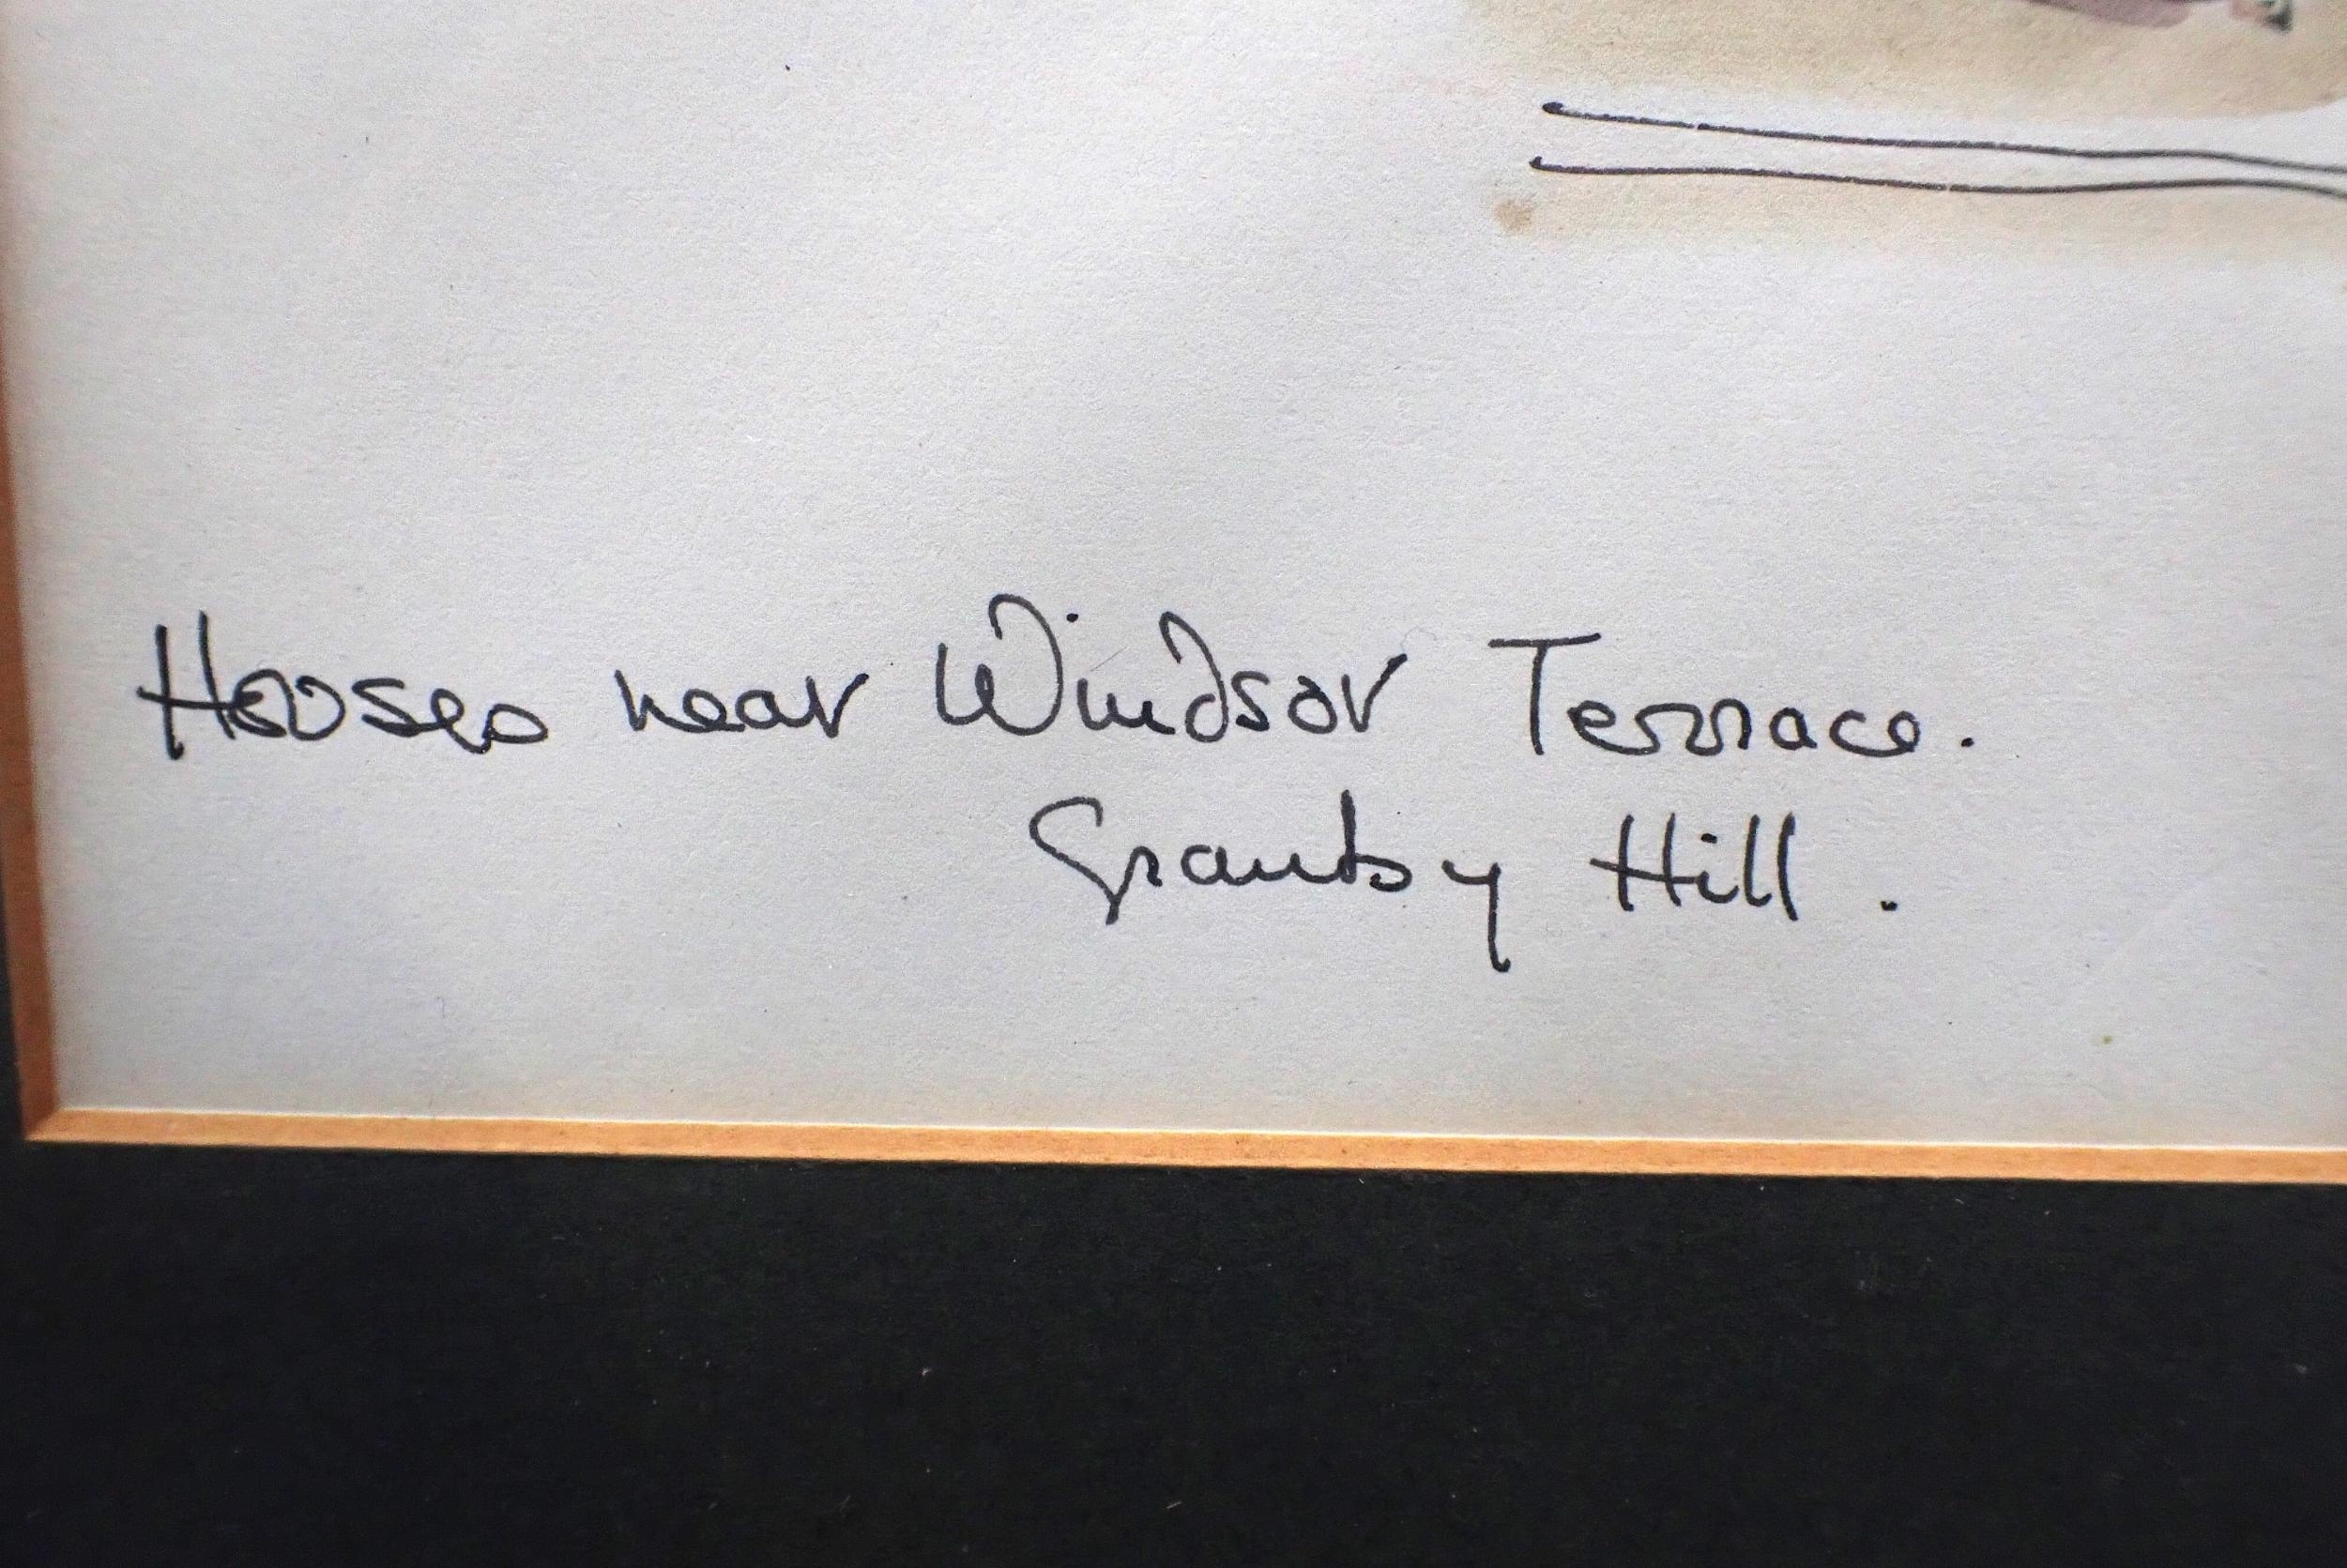 Houses near Windsor Terrace.
Granby Hill.